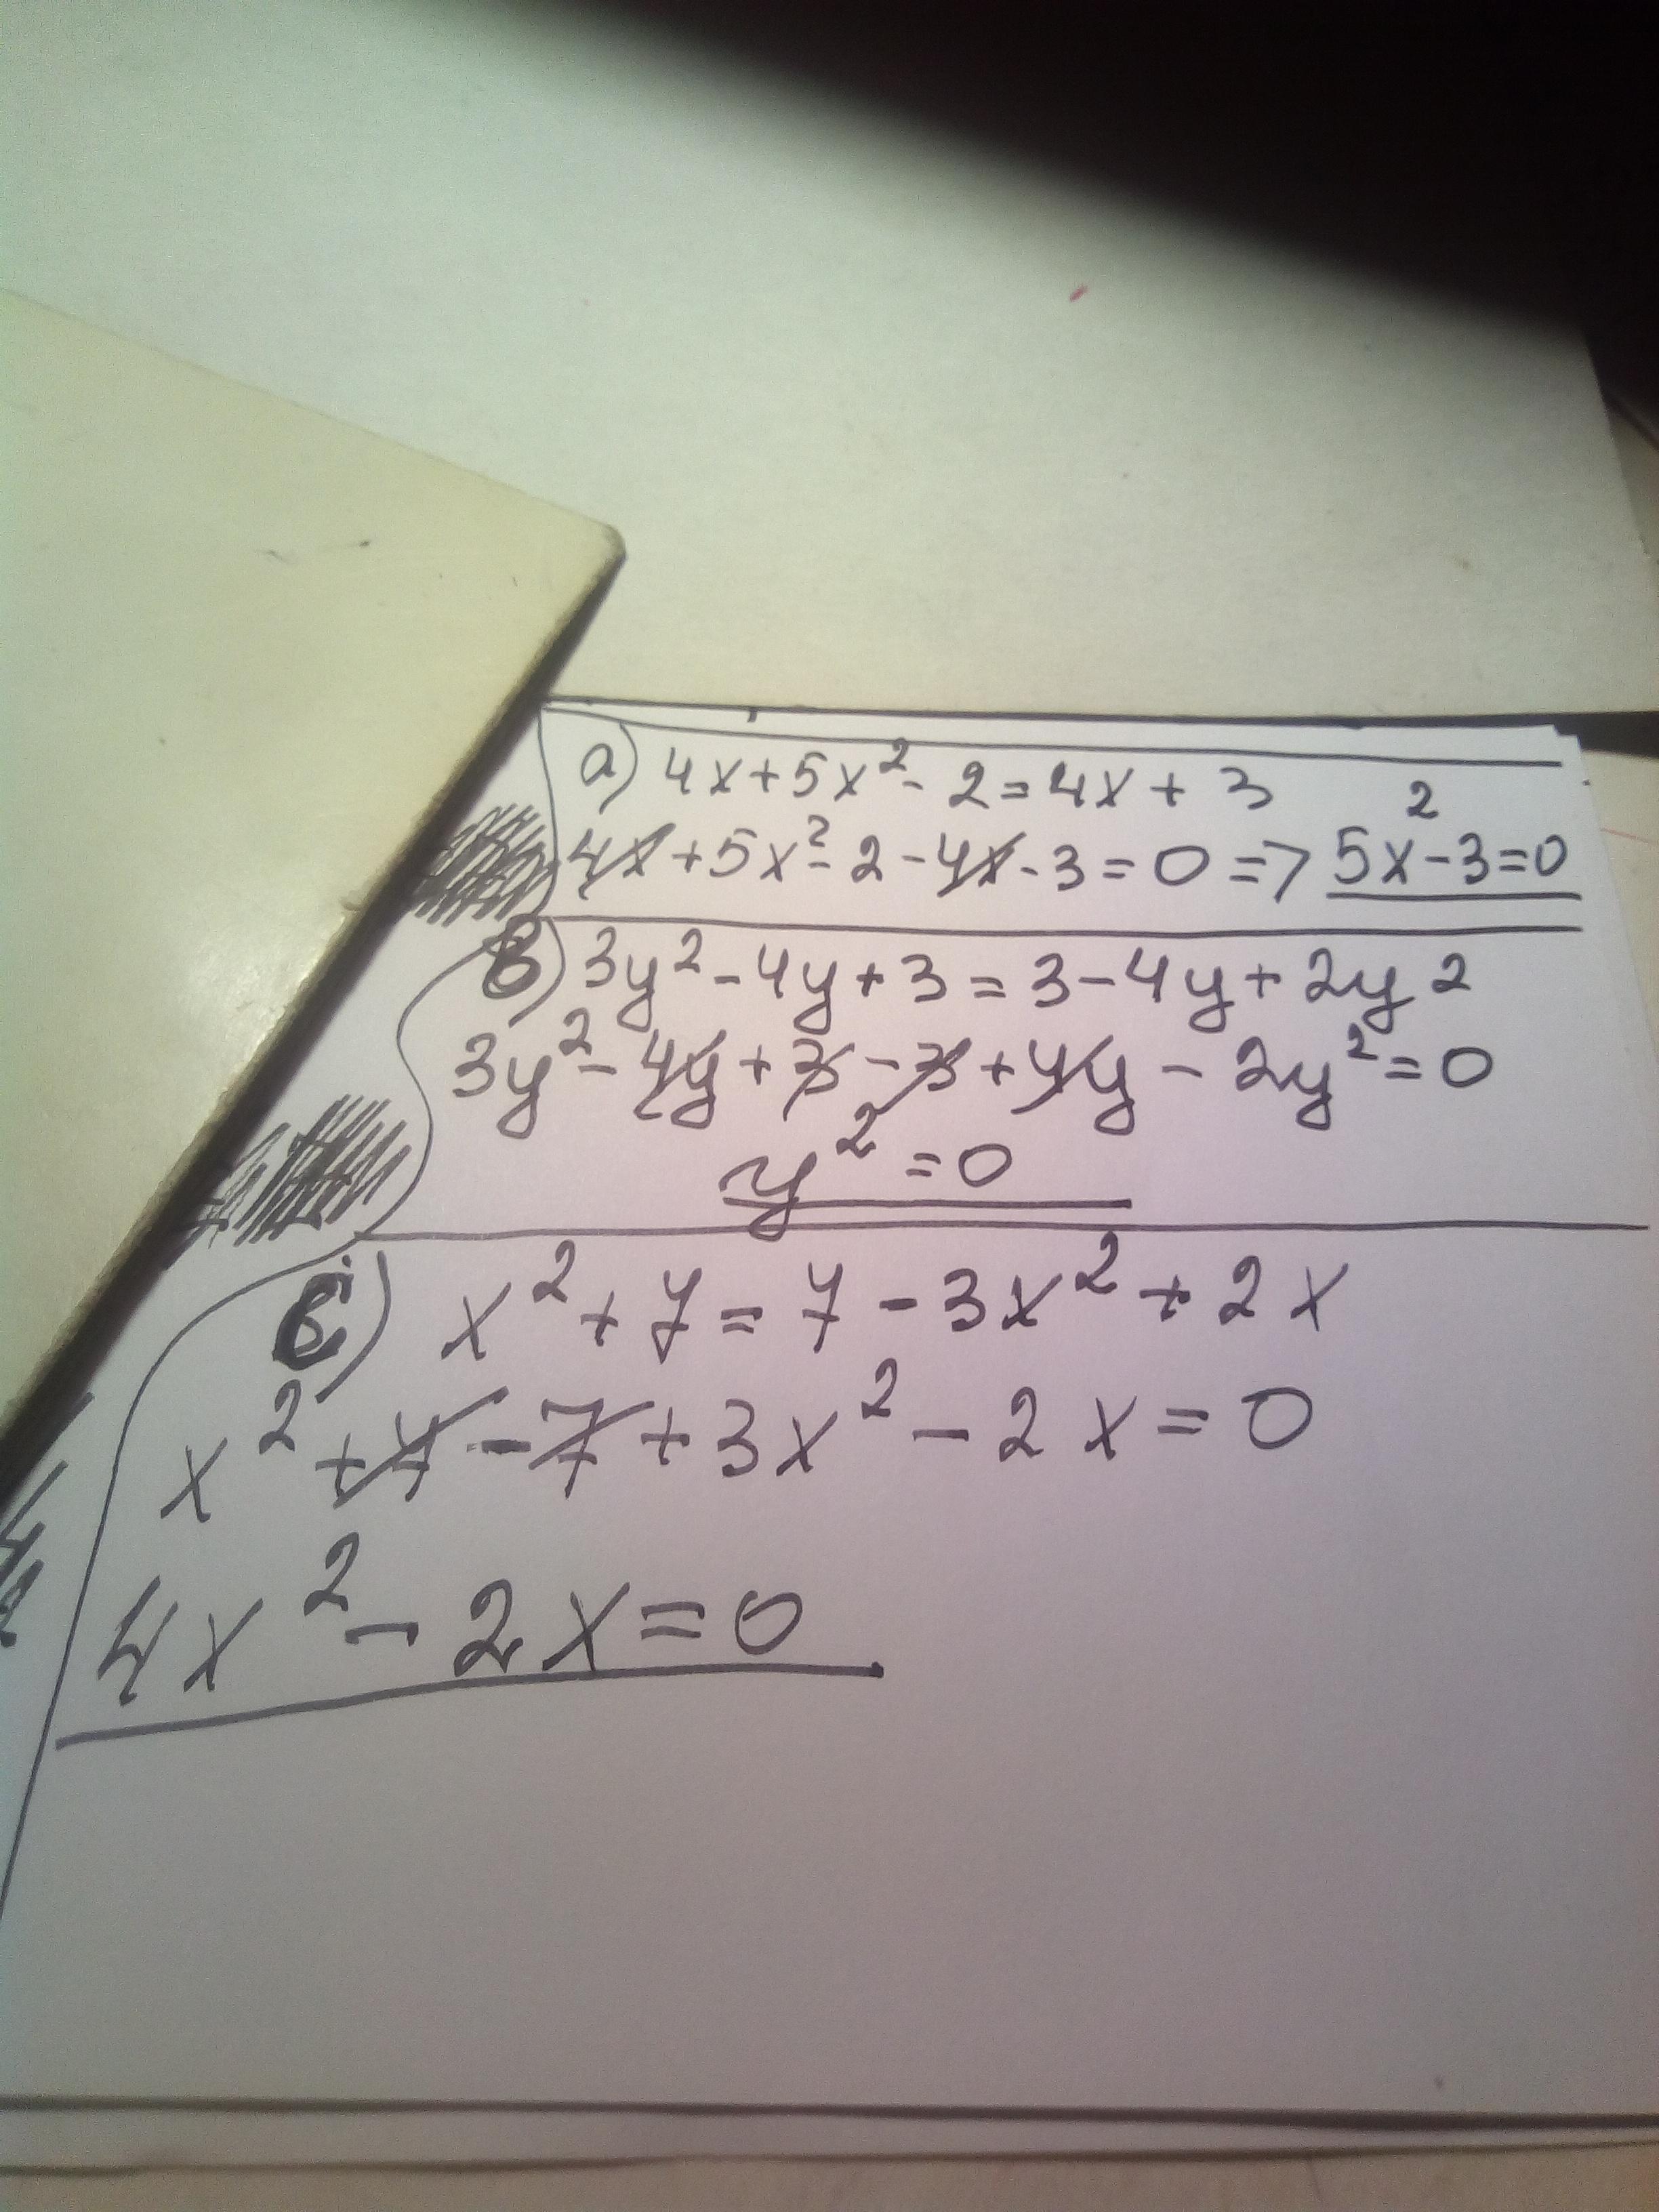 a) 4x+5x²-2=4x+3
4x+5x²-2-4x-3=0=>5x²-3=0
B) 3y²-4y+3=3-4y+2y2
3y²-4y+3-3+4y-2y²=0
y²=0
C) x²+7=7-3x²+2x
x²+7-7+3x²-2x=0
4x²-2x=0